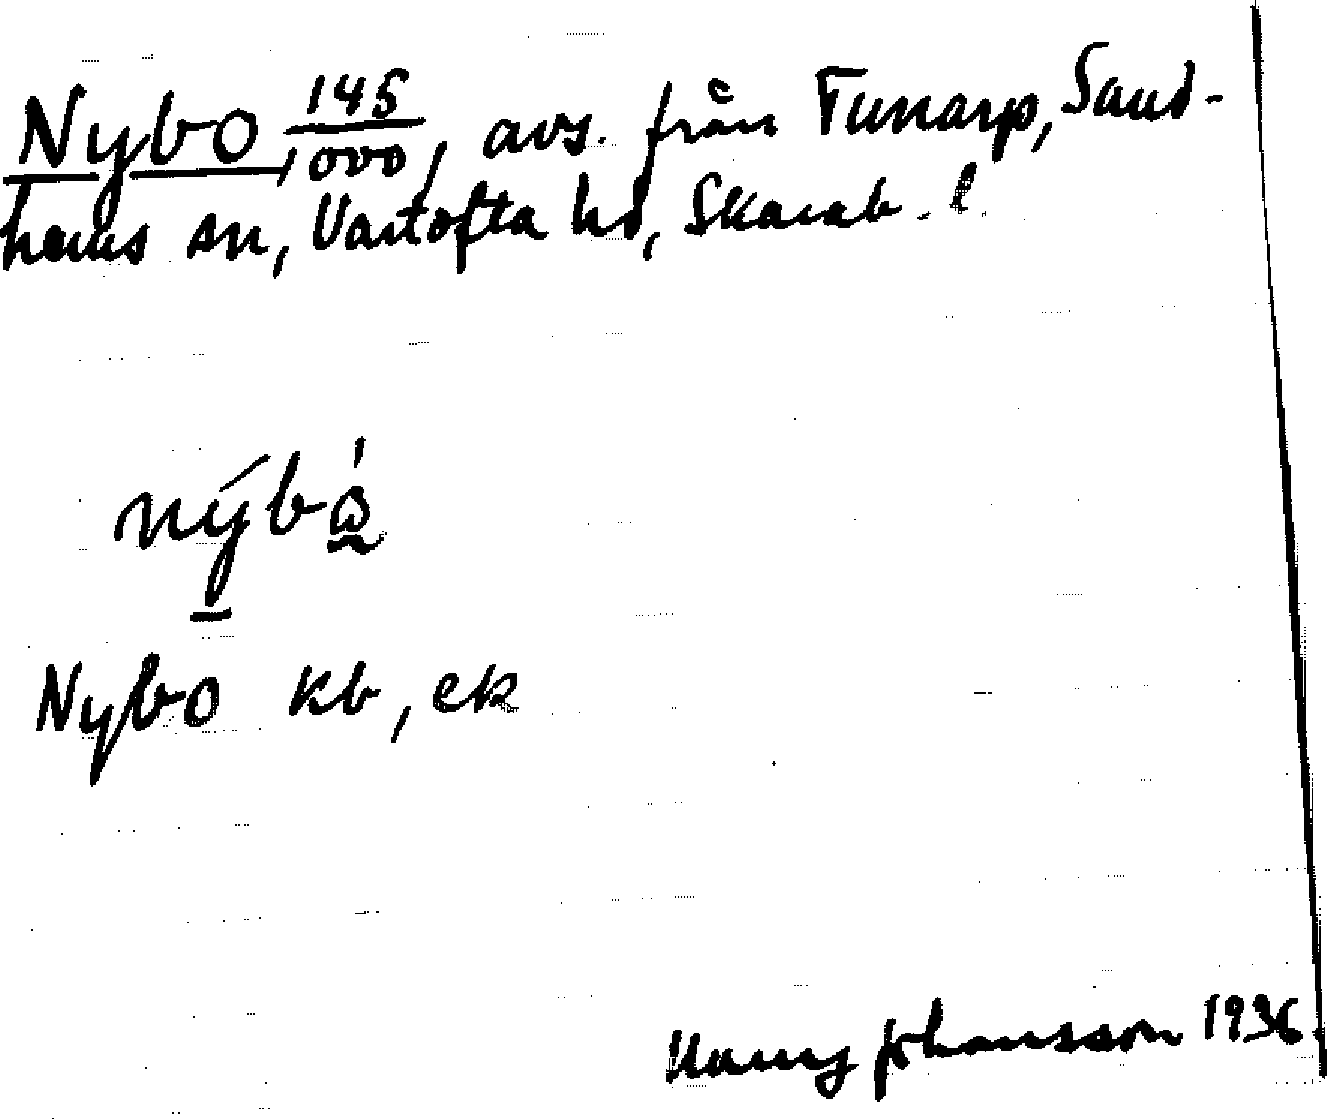 Nybo 145/000, avs. från Tunarp, Sand-
hems sn, Vartofta hd, Skarab. l.
nýbǫ̀
Nybo kb, ek
Johansson 1936